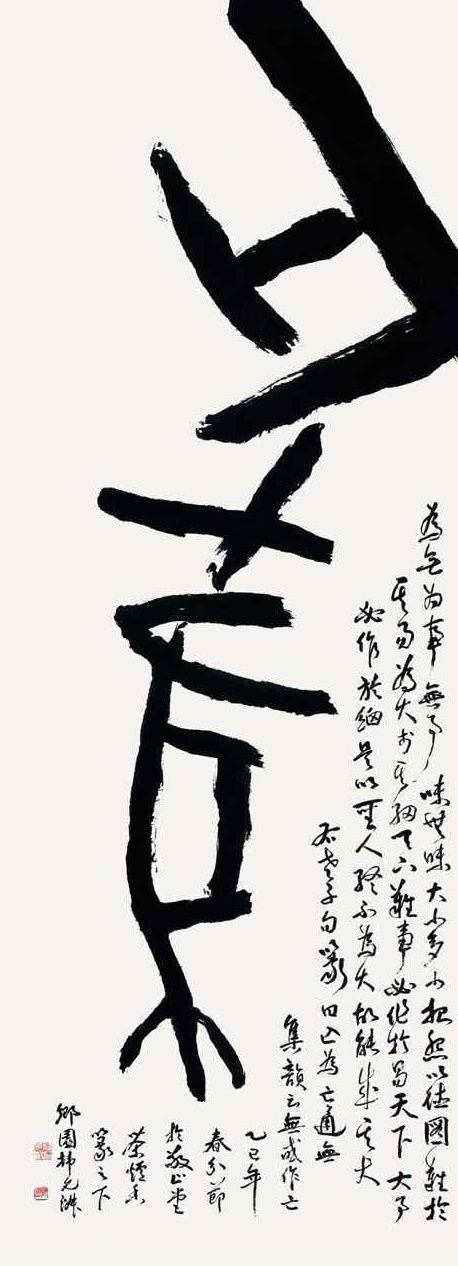 亡為
為无為事無事味無味大小多少報怨以德圖難於
其易為大於其細天下難事必作於易天下大事
必作於細是以聖人終不為大故能成其大
右老子句篆曰亡為亡通無
集韻云無或作亡
乙巳年
春分節
於敬止堂
茶煙香
篆之下
鄉園韓